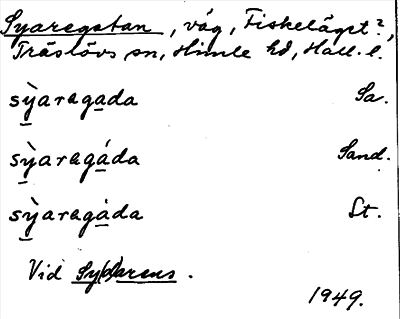 Syaregatan, väg, Fiskeläget?,
Träslövs sn, Himle hd, Hall. l.
sỳaragada Sa.
sỳaragáda Sand.
sỳaragàda St.
Vid Sy(d)arens.
1949.